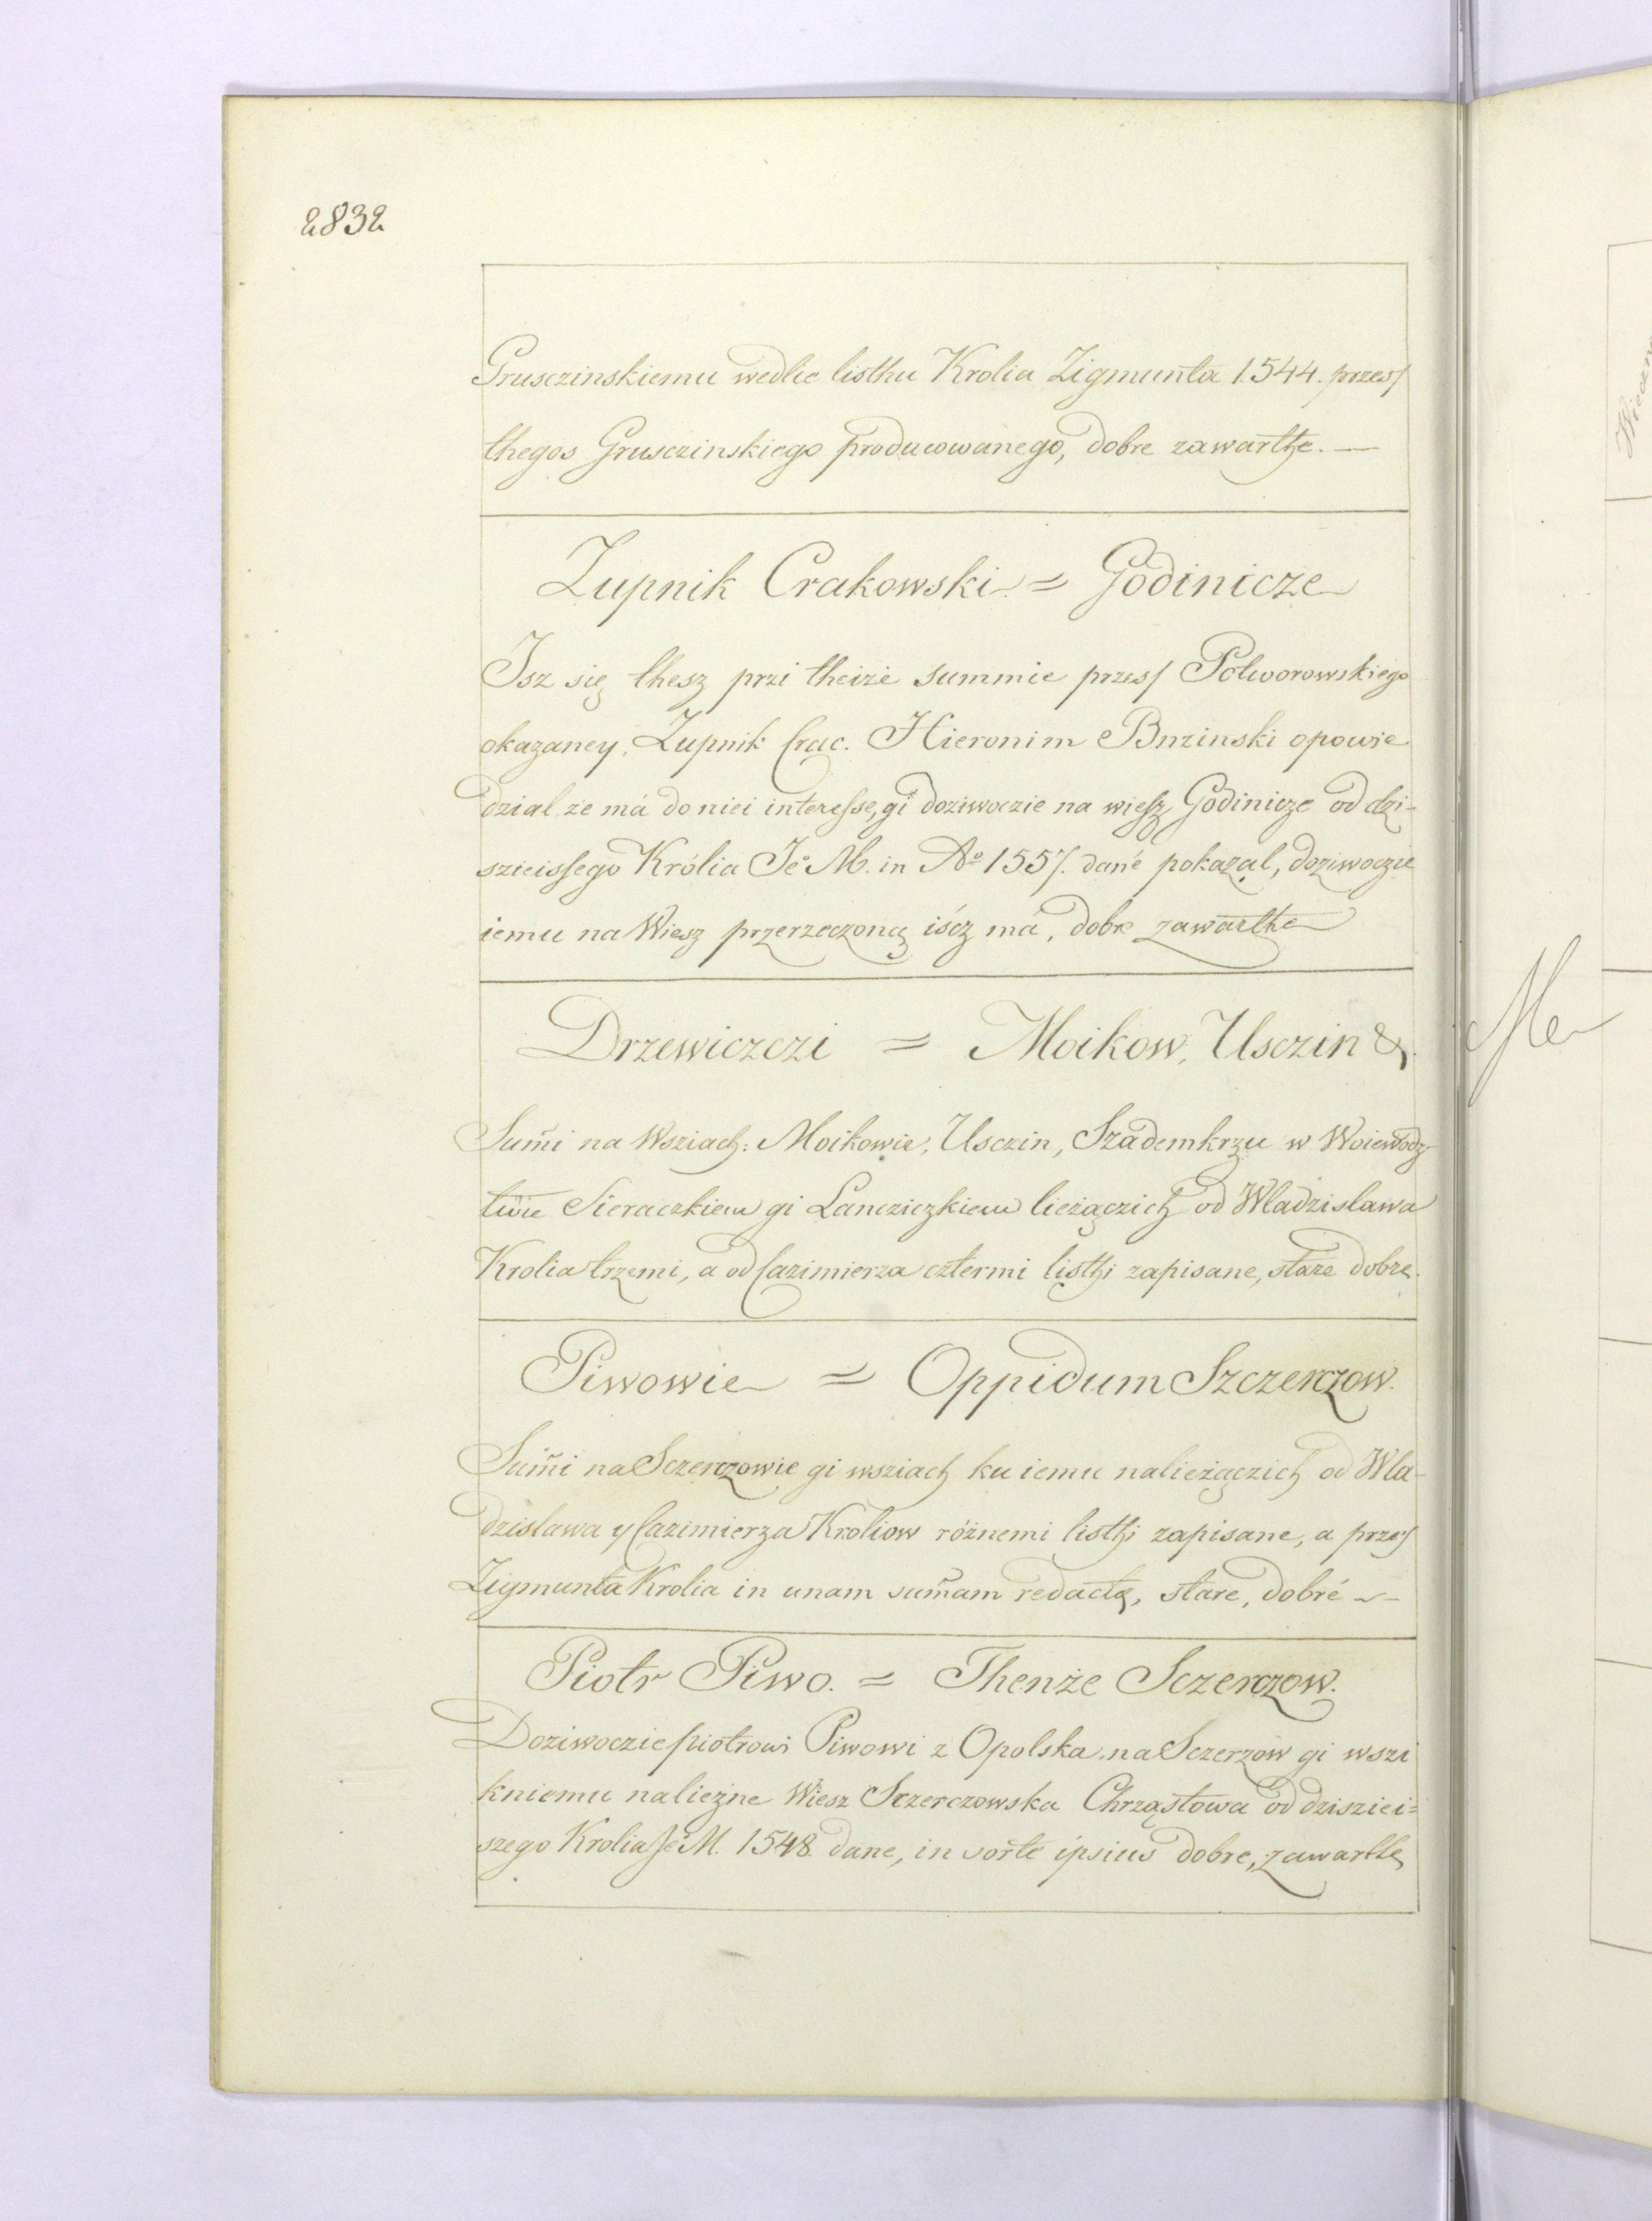 2832
Grusczinskiemu wedlie listhu Krolia Zigmunta 1544. przess
thegos Grusczinskiego producowanego, dobre zawarthe. —
Zupnik Crakowski = Godinicze
Isz się thesz przi theize summie przess Potworowskiego
okazaney, Zupnik Crac. Hieronim Bnzinski opowie
dzial ze má do niei interesse, gi doziwoczie na wiesz Godinicze od dzi-
szieissego Królia Je° M. in A° 1557. dané pokazal, doziwoczie
iemu na Wiesz przerzeczoną iścz má, dobre zawarthe
Drzewiczczi = Moikow, Usczin &.
Sum̃i na Wsziach: Moikowie, Usczin, Szademkrzu w Woiewodz
twie Sieraczkiem gi Lancziczkiem lieżączich od Wladzislawa
Krolia trzemi, a od Cazimierza cztermi listhi zapisane, stare dobre.
Piwowie = Oppidum Szczerczow.
Sum̃i na Sczerczowie gi wsziach ku iemu nalieżączich od Wla-
dzislawa y Cazimierza Kroliow różnemi listhi zapisane, a przess
Zigmunta Krolia in unam sum̃am redactę, stare, dobré —
Piotr Piwo. = Thenże Sczerczow.
Doziwoczie piotrowi Piwowi z Opolska na Sczerzow gi wszi
kniemu nalieżne Wiesz Sczerczowska Chrząstowa od dzisziei=
szego Krolia Je° M. 1548. dane, in sorte ipsius dobre, zawarthe